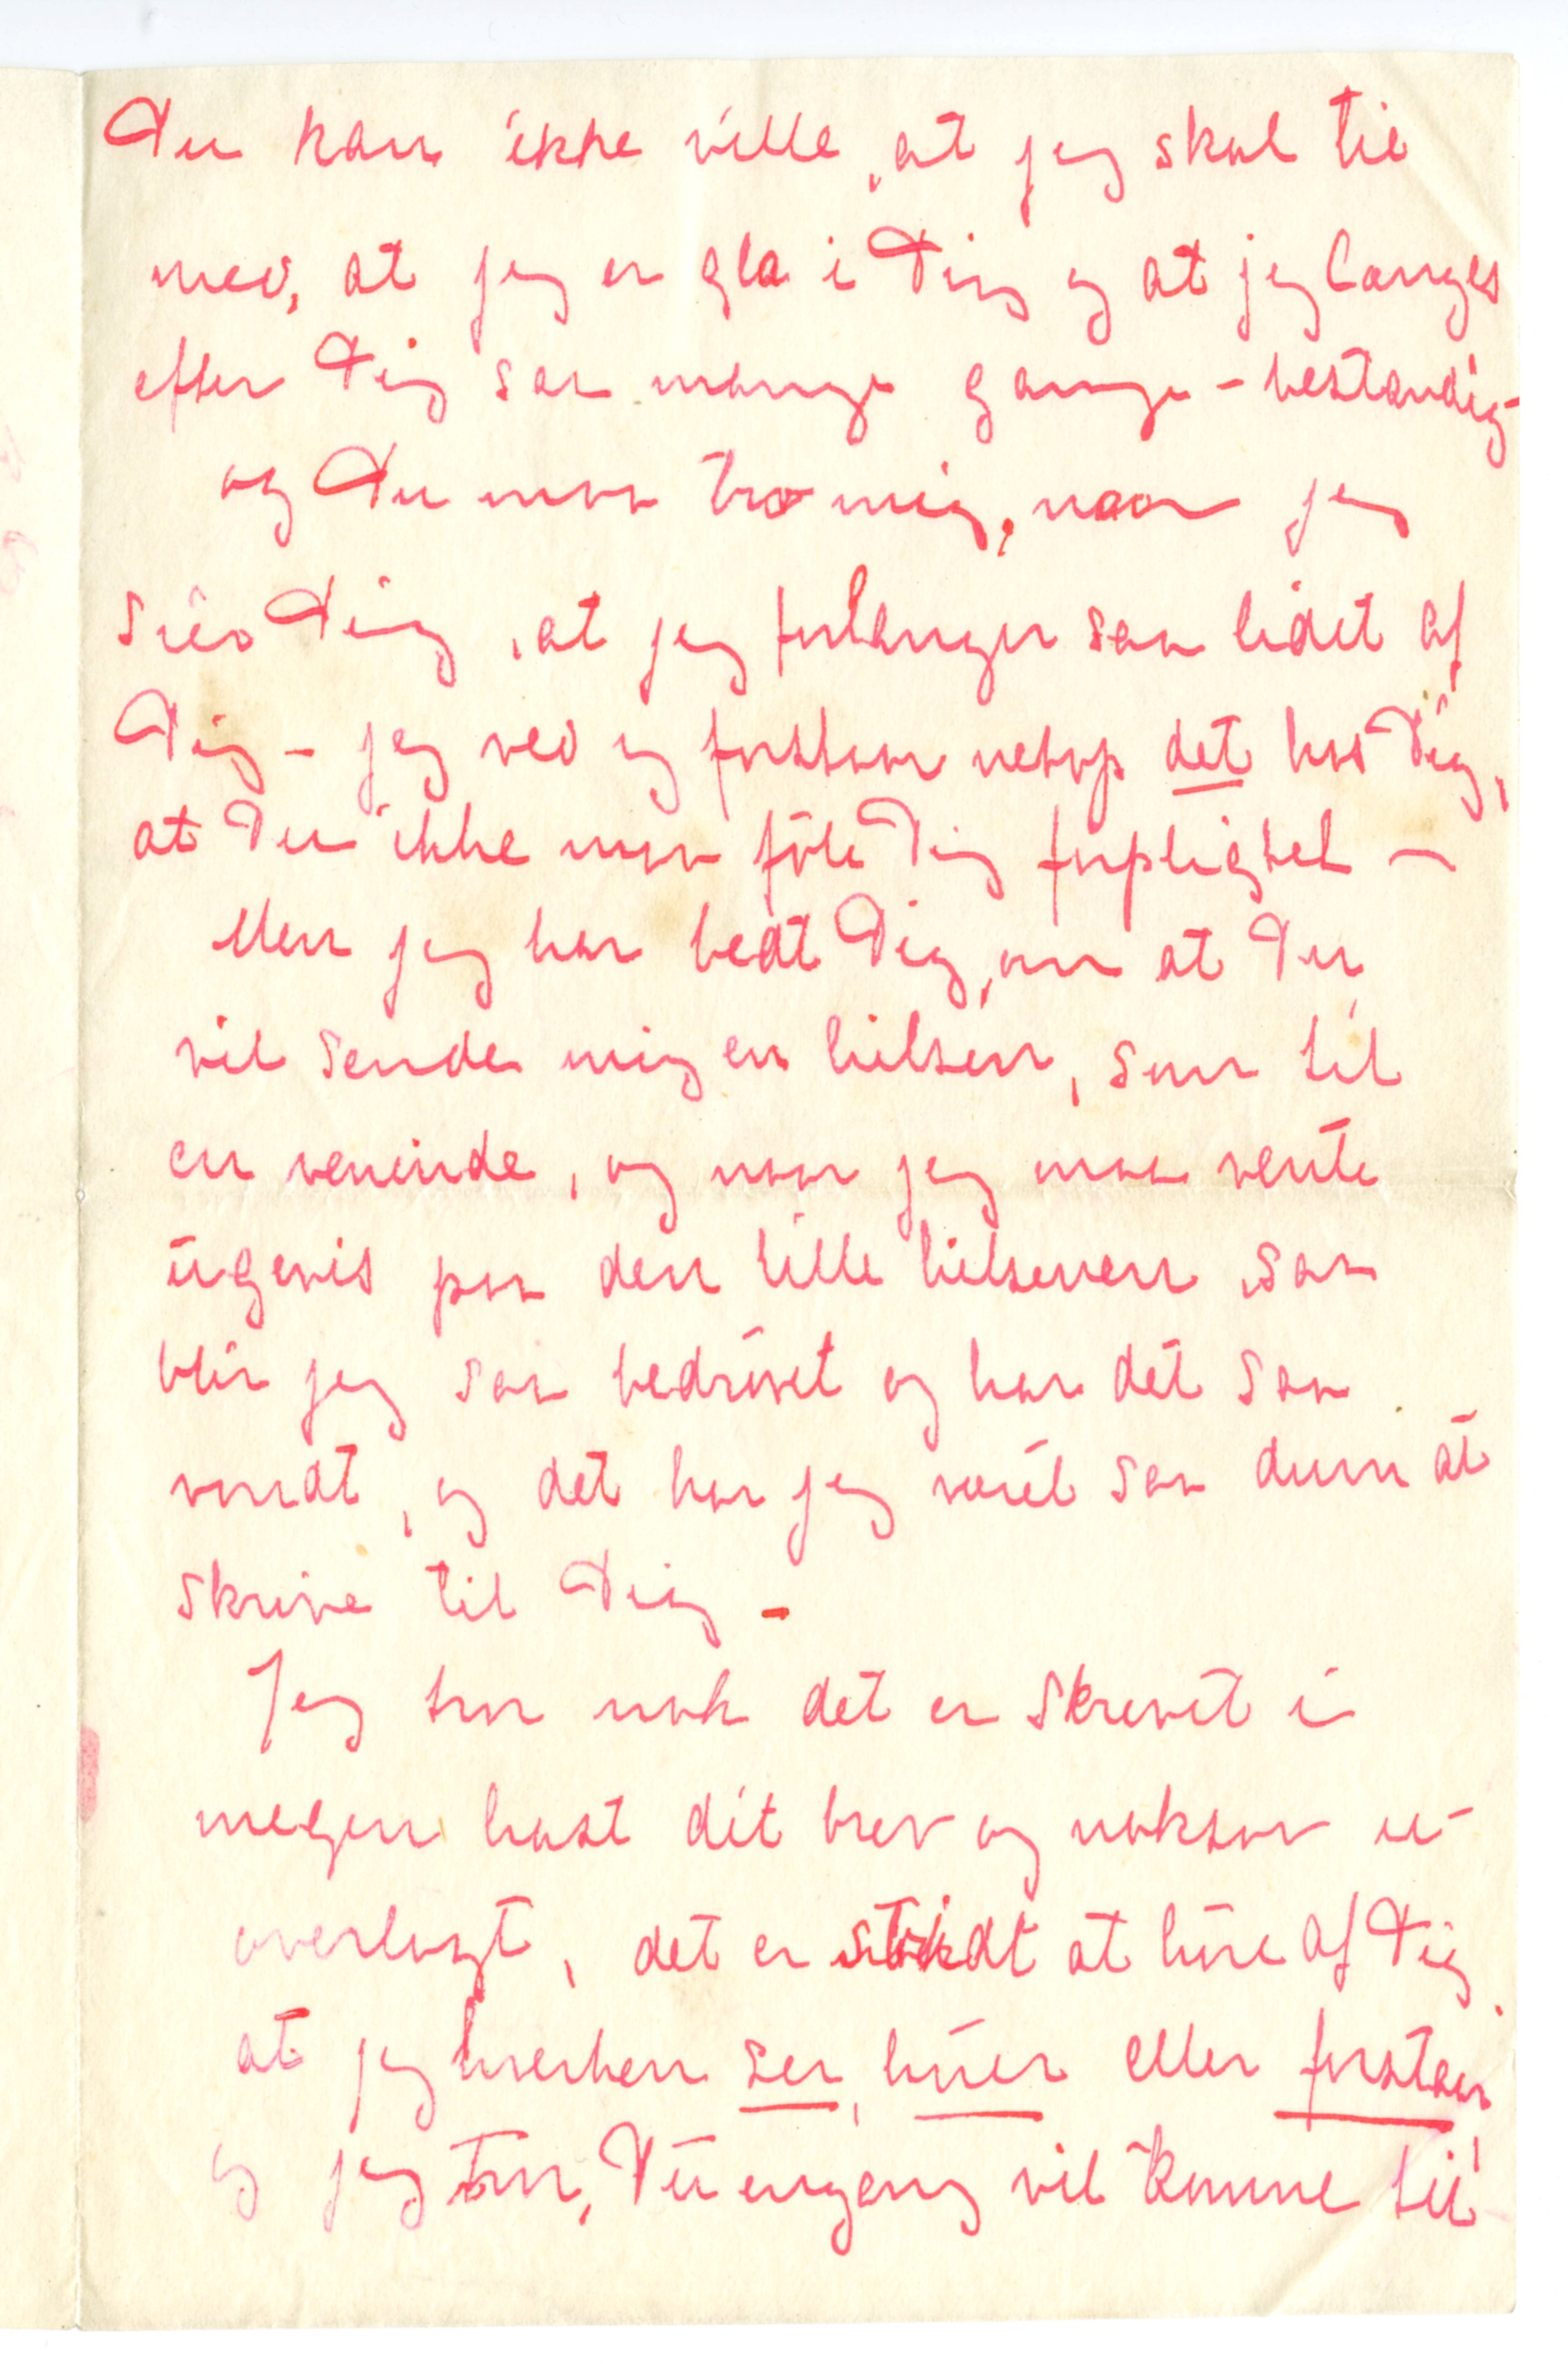 Du kan ikke ville, at jeg skal til
med, at jeg er gla i Dig og at jeg længes
efter Dig saa mange gange – bestandig –
og Du maa tro mig, naar jeg
sier Dig, at jeg forlanger saa lidet af
Dig – jeg ved og forstaar netop det hos Dig,
at Du ikke maa föle Dig forpligtet –
Men jeg har bedt Dig, om at Du
vil sende mig en hilsen, som til
en veninde, og naar jeg maa vente
ugevis paa den lille hilsenen, saa
blir jeg saa bedrövet og har det saa
vondt, og det har jeg været saa dum at
skrive til Dig –
Jeg tror nok det er skrevet i
megen hast dit brev og noksaa u-
overlagt, det er at höre af Dig
at jeg hverken ser, hörer eller forstaar
og jeg tror, Du engang vil komme til